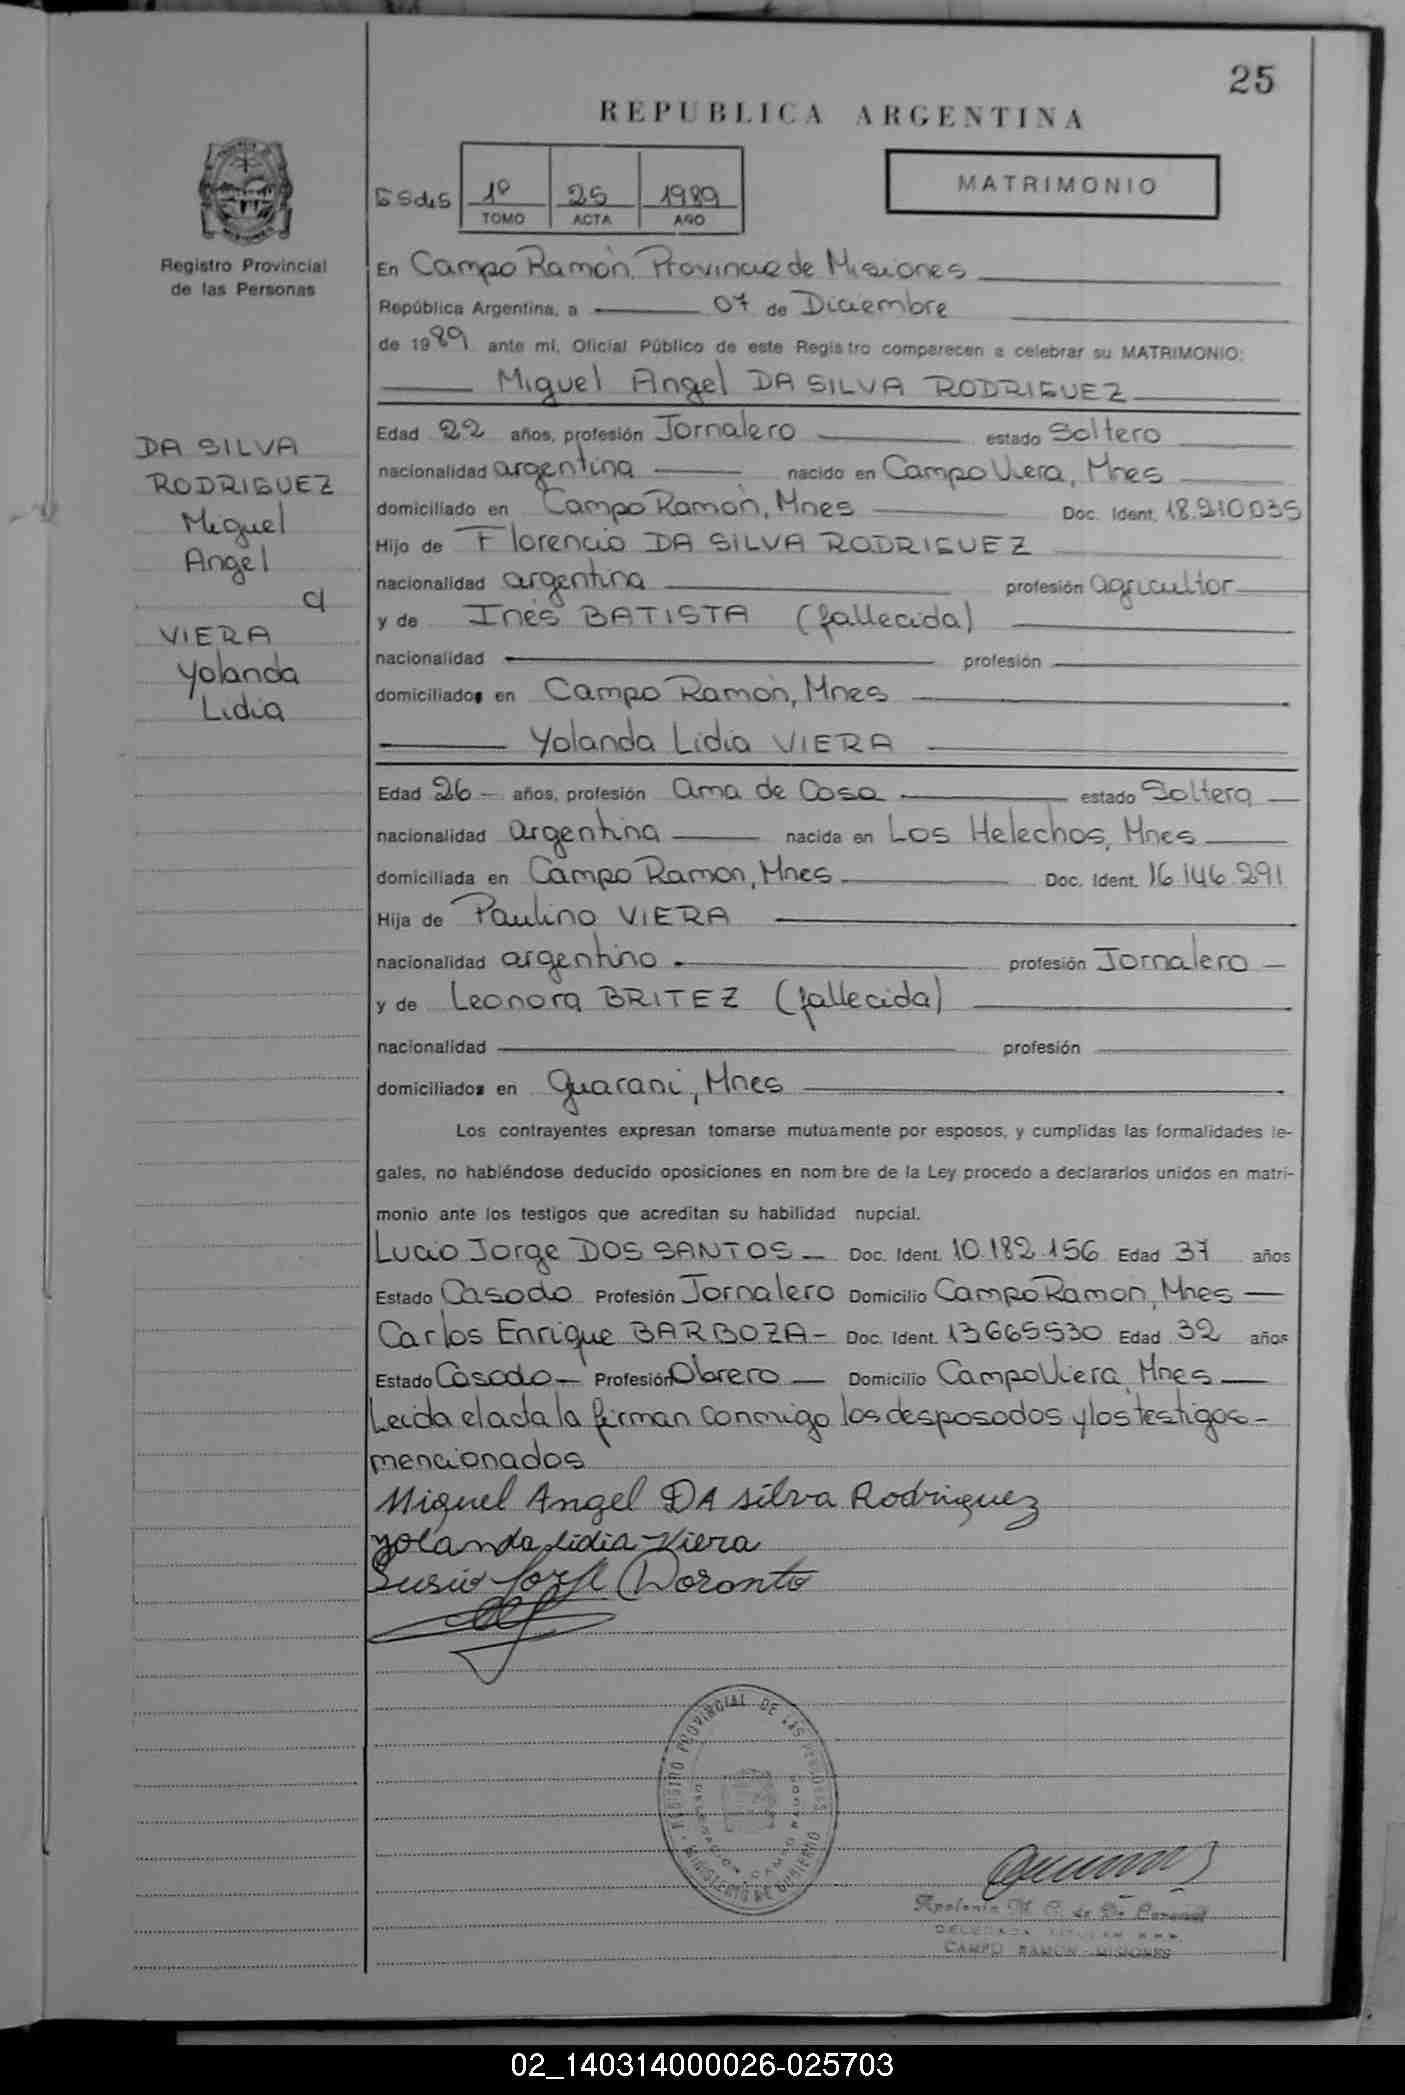 25
REPUBLICA ARGENTINA
1º 25 1989
TOMO ACTA AÑO
MATRIMONIO
Registro Provincial
de las Personas
En Campo Ramón, Provincia de Misiones
República Argentina, a 07 de Diciembre
de 1989 ante mí, Oficial Público de este Registro comparecen a celebrar su MATRIMONIO:
Miguel Angel DA SILVA RODRIGUEZ
DA SILVA
RODRIGUEZ
Miguel
Angel
c/
VIERA
Yolanda
Lidia
Edad 22 años, profesión Jornalero estado Soltero
nacionalidad argentina nacido en Campo Viera, Mnes
domiciliado en Campo Ramón, Mnes Doc. Ident. 18.210.035
Hijo de Florencio DA SILVA RODRIGUEZ
nacionalidad argentina profesión agricultor
y de Inés BATISTA (fallecida)
nacionalidad profesión
domiciliados en Campo Ramón, Mnes
Yolanda Lidia VIERA
Edad 26 años, profesión Ama de Casa estado Soltera
nacionalidad argentina nacida en Los Helechos, Mnes
domiciliada en Campo Ramon, Mnes Doc. Ident. 16.146.291
Hija de Paulino VIERA
nacionalidad argentino profesión Jornalero
y de Leonora BRITEZ (fallecida)
nacionalidad profesión
domiciliados en Guarani, Mnes
Los contrayentes expresan tomarse mutuamente por esposos, y cumplidas las formalidades le-
gales, no habiéndose deducido oposiciones en nombre de la Ley procedo a declararlos unidos en matri-
monio ante los testigos que acreditan su habilidad nupcial.
Lucio Jorge DOS SANTOS Doc. Ident. 10.182.156 Edad 37 años
Estado Casado Profesión Jornalero Domicilio Campo Ramon, Mnes
Carlos Enrique BARBOZA Doc. Ident. 13665530 Edad 32 años
Estado Casado Profesión Obrero Domicilio Campo Viera, Mnes
Leida el acta la firman conmigo los desposados y los testigos
mencionados
Miguel Angel DA silva Rodriguez
yolanda lidia Viera
REGISTRO PROVINCIAL DE LAS PERSONAS
MINISTERIO DE GOBIERNO
DELEGACION CAMPO RAMON
CAMPO RAMON - MISIONES
02_140314000026-025703